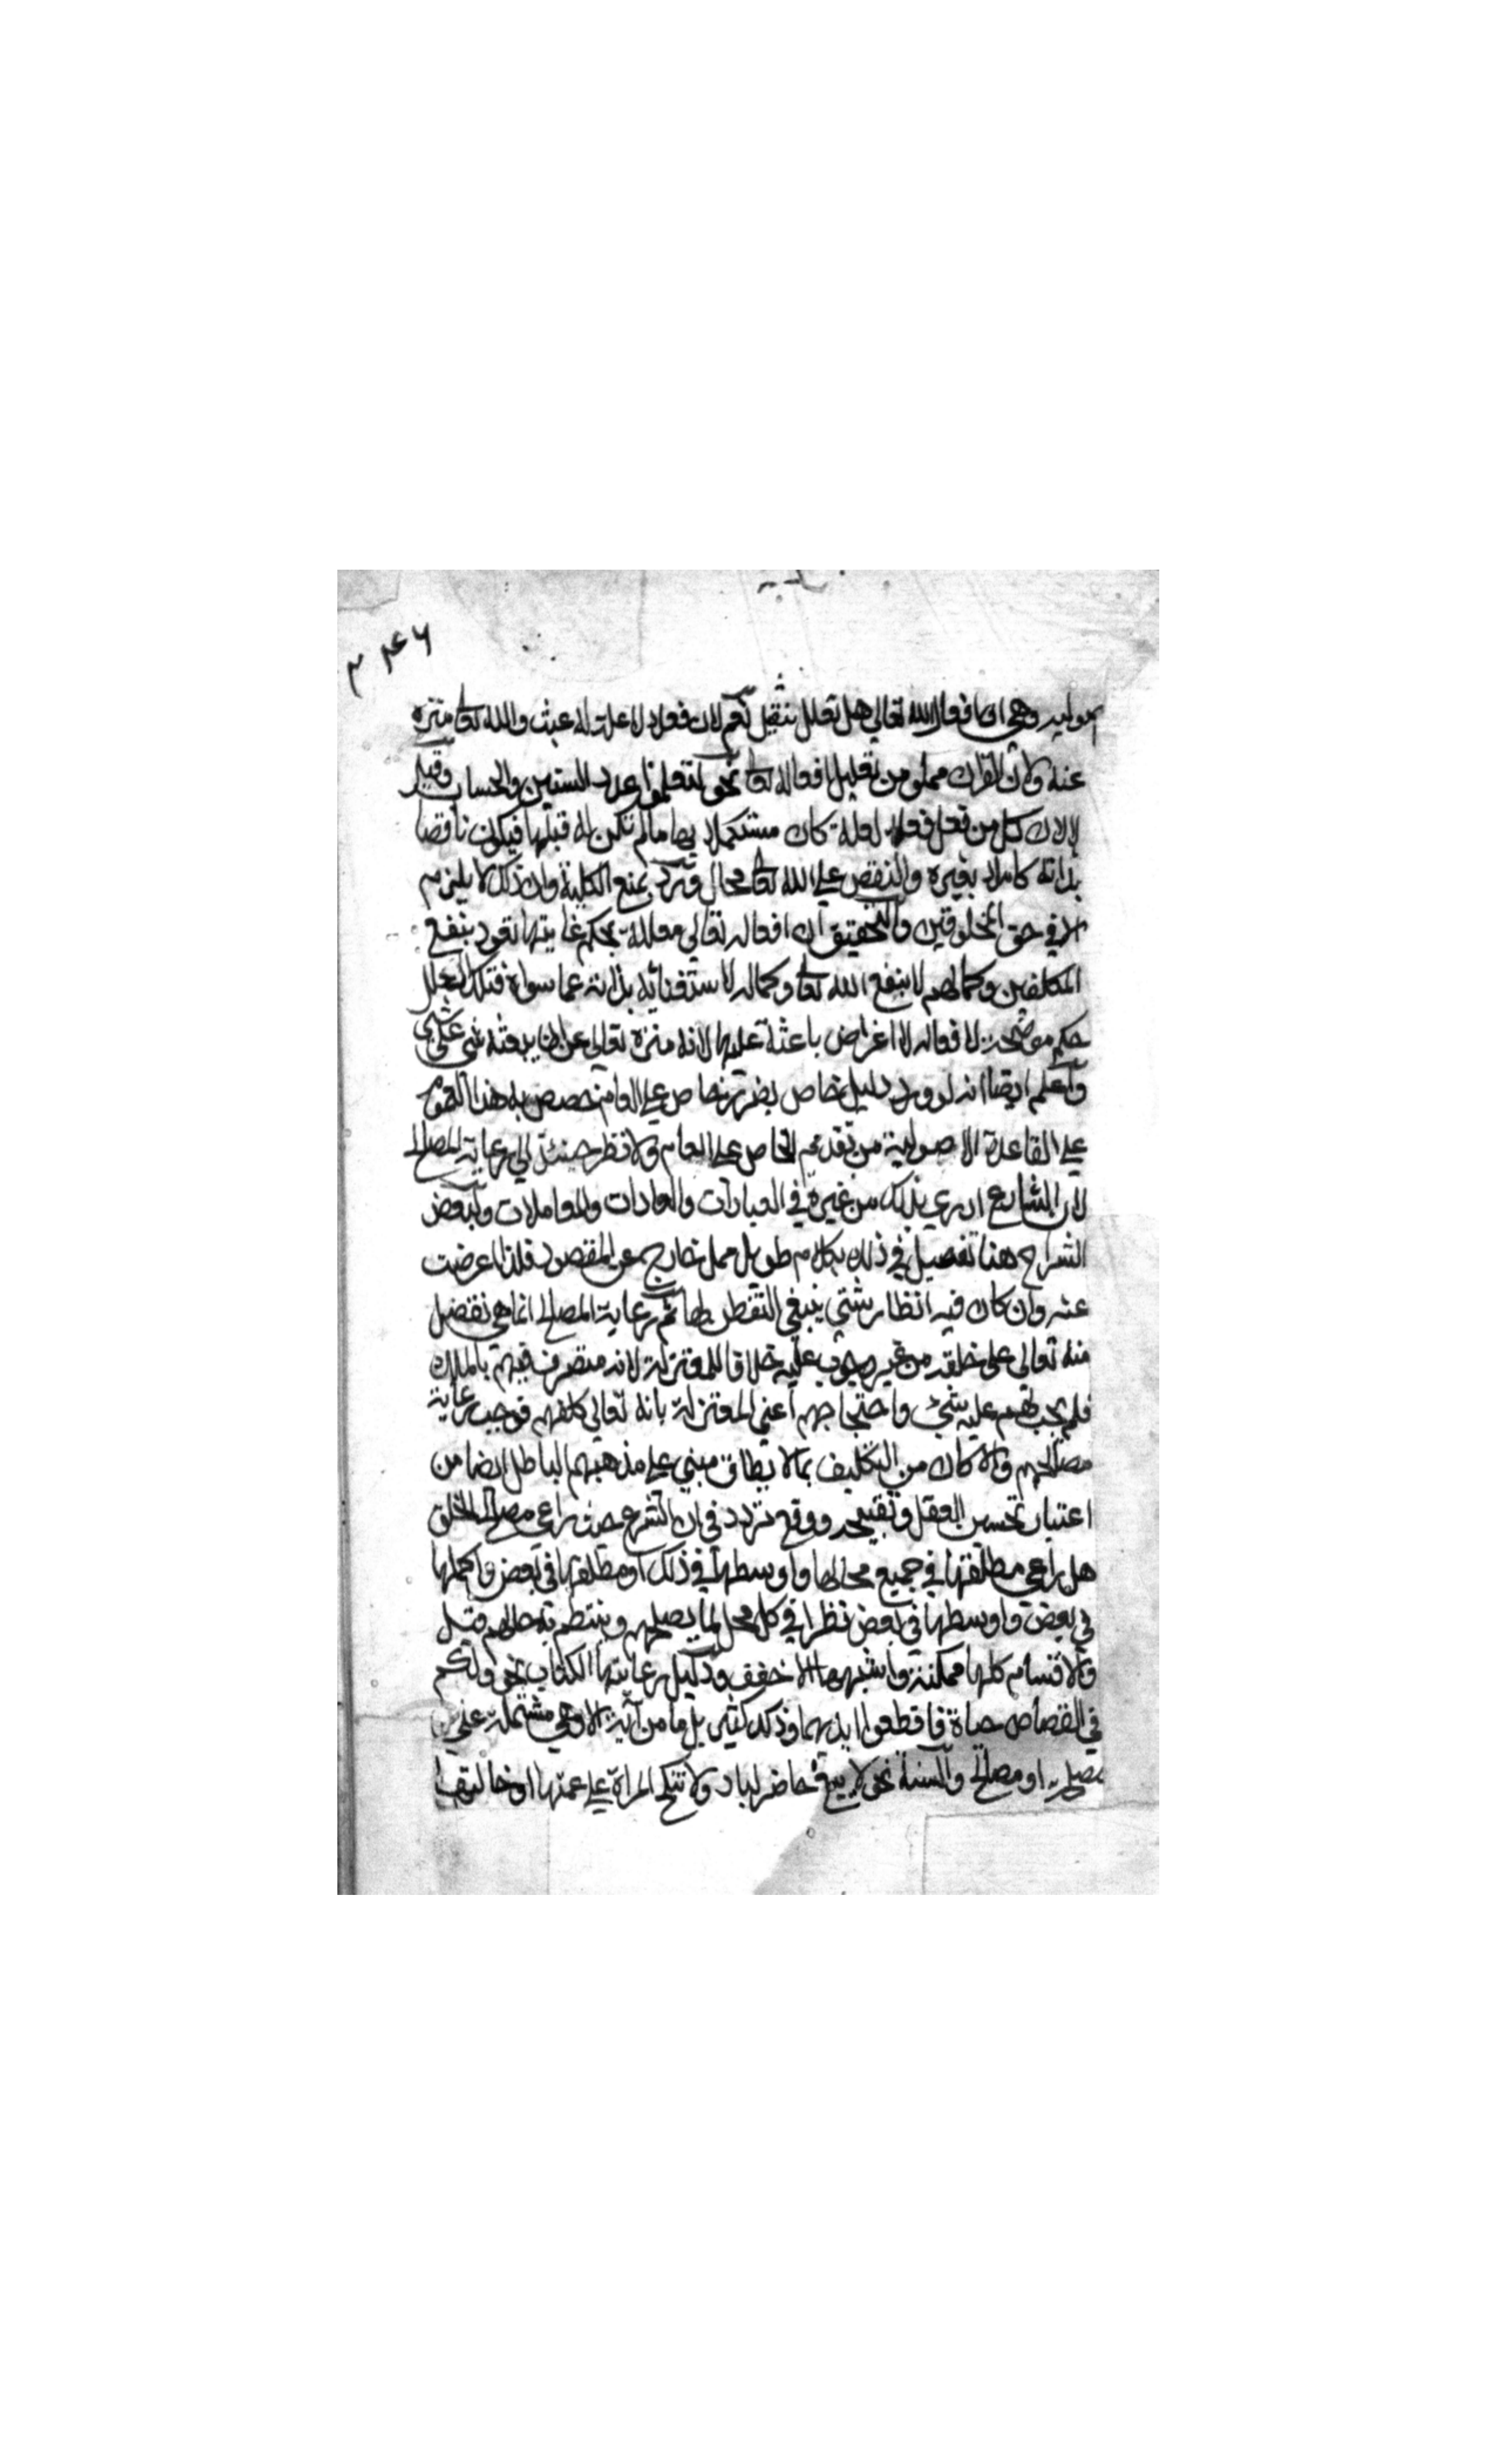 ٢٤٦ ٣
اصولية وهي ان افعال الله تعالى هل تعلل فقيل نعم لان فعلا لا علة له عبث والله تعا منزه
عنه ولان القران مملو من تعليل افعاله تعا نحو لتعلموا عدد السنين والحساب وقيل
لا لان كل من فعل فعلا لعلة كان مستكملا بها ما لم تكن له قبلها فيكون ناقصا
بذاته كاملا بغيره والنقص على الله تعا محال ويرد بمنع الكلية وان ذلك لا يلزم
الا في حق المخلوقين والتحقيق ان افعاله تعالى معللة بحكم غايتها تعود بنفع
المكلفين وكمالهم لا بنفع الله تعا وكماله لاستغنائه بذاته عما سواه فتلك العلل
حكم موضحة لافعاله لا اغراض باعثة عليها لانه منزه تعالى عن ان يبعثه شي على شي
واعلم ايضا انه لو ورد دليل خاص بضرر خاص على العام خصص به هذا العموم
على القاعدة الاصولية من تقديم الخاص على العام ولا نظر حينئذ الى رعاية المصالح
لان الشارع ادرى بذلك من غيره في العبادات والعادات والمعاملات ولبعض
الشراح هنا تفصيل في ذلك بكلام طويل ممل خارج عن المقصود فلذا اعرضت
عنه وان كان فيه انظار شتى ينبغي التفطن لها ثم رعاية المصالح انما هي تفضل
منه تعالى على خلقه من غير وجوب عليه خلافا للمعتزلة لانه متصرف فيهم بالملك
فلم يجب لهم عليه شيء واحتجاجهم اعني المعتزلة بانه تعالى كلفهم فوجب رعاية
مصالحهم والا كان من التكليف بما لا يطاق مبني على مذهبهم الباطل ايضا من
اعتبار تحسين العقل وتقبيحه ووقع تردد في ان الشرع حيث راعى مصالح الخلق
هل راعى مطلقها في جميع محالها او اوسطها في ذلك او مطلقها في بعض واكملها
في بعض واوسطها في بعض نظرا في كل محل لما يصلحهم وينتظم به حالهم قيل
والاقسام كلها ممكنة واشبهها الاخفف ودليل رعايتها الكتاب نحو ولكم
في القصاص حياة فاقطعوا ايديهما وذلك كثير بل ما من آية الا وهي مشتملة على
مصلحة او مصالح والسنة نحو لا يبع حاضر لباد ولا تنكح المراة على عمتها او خالتها